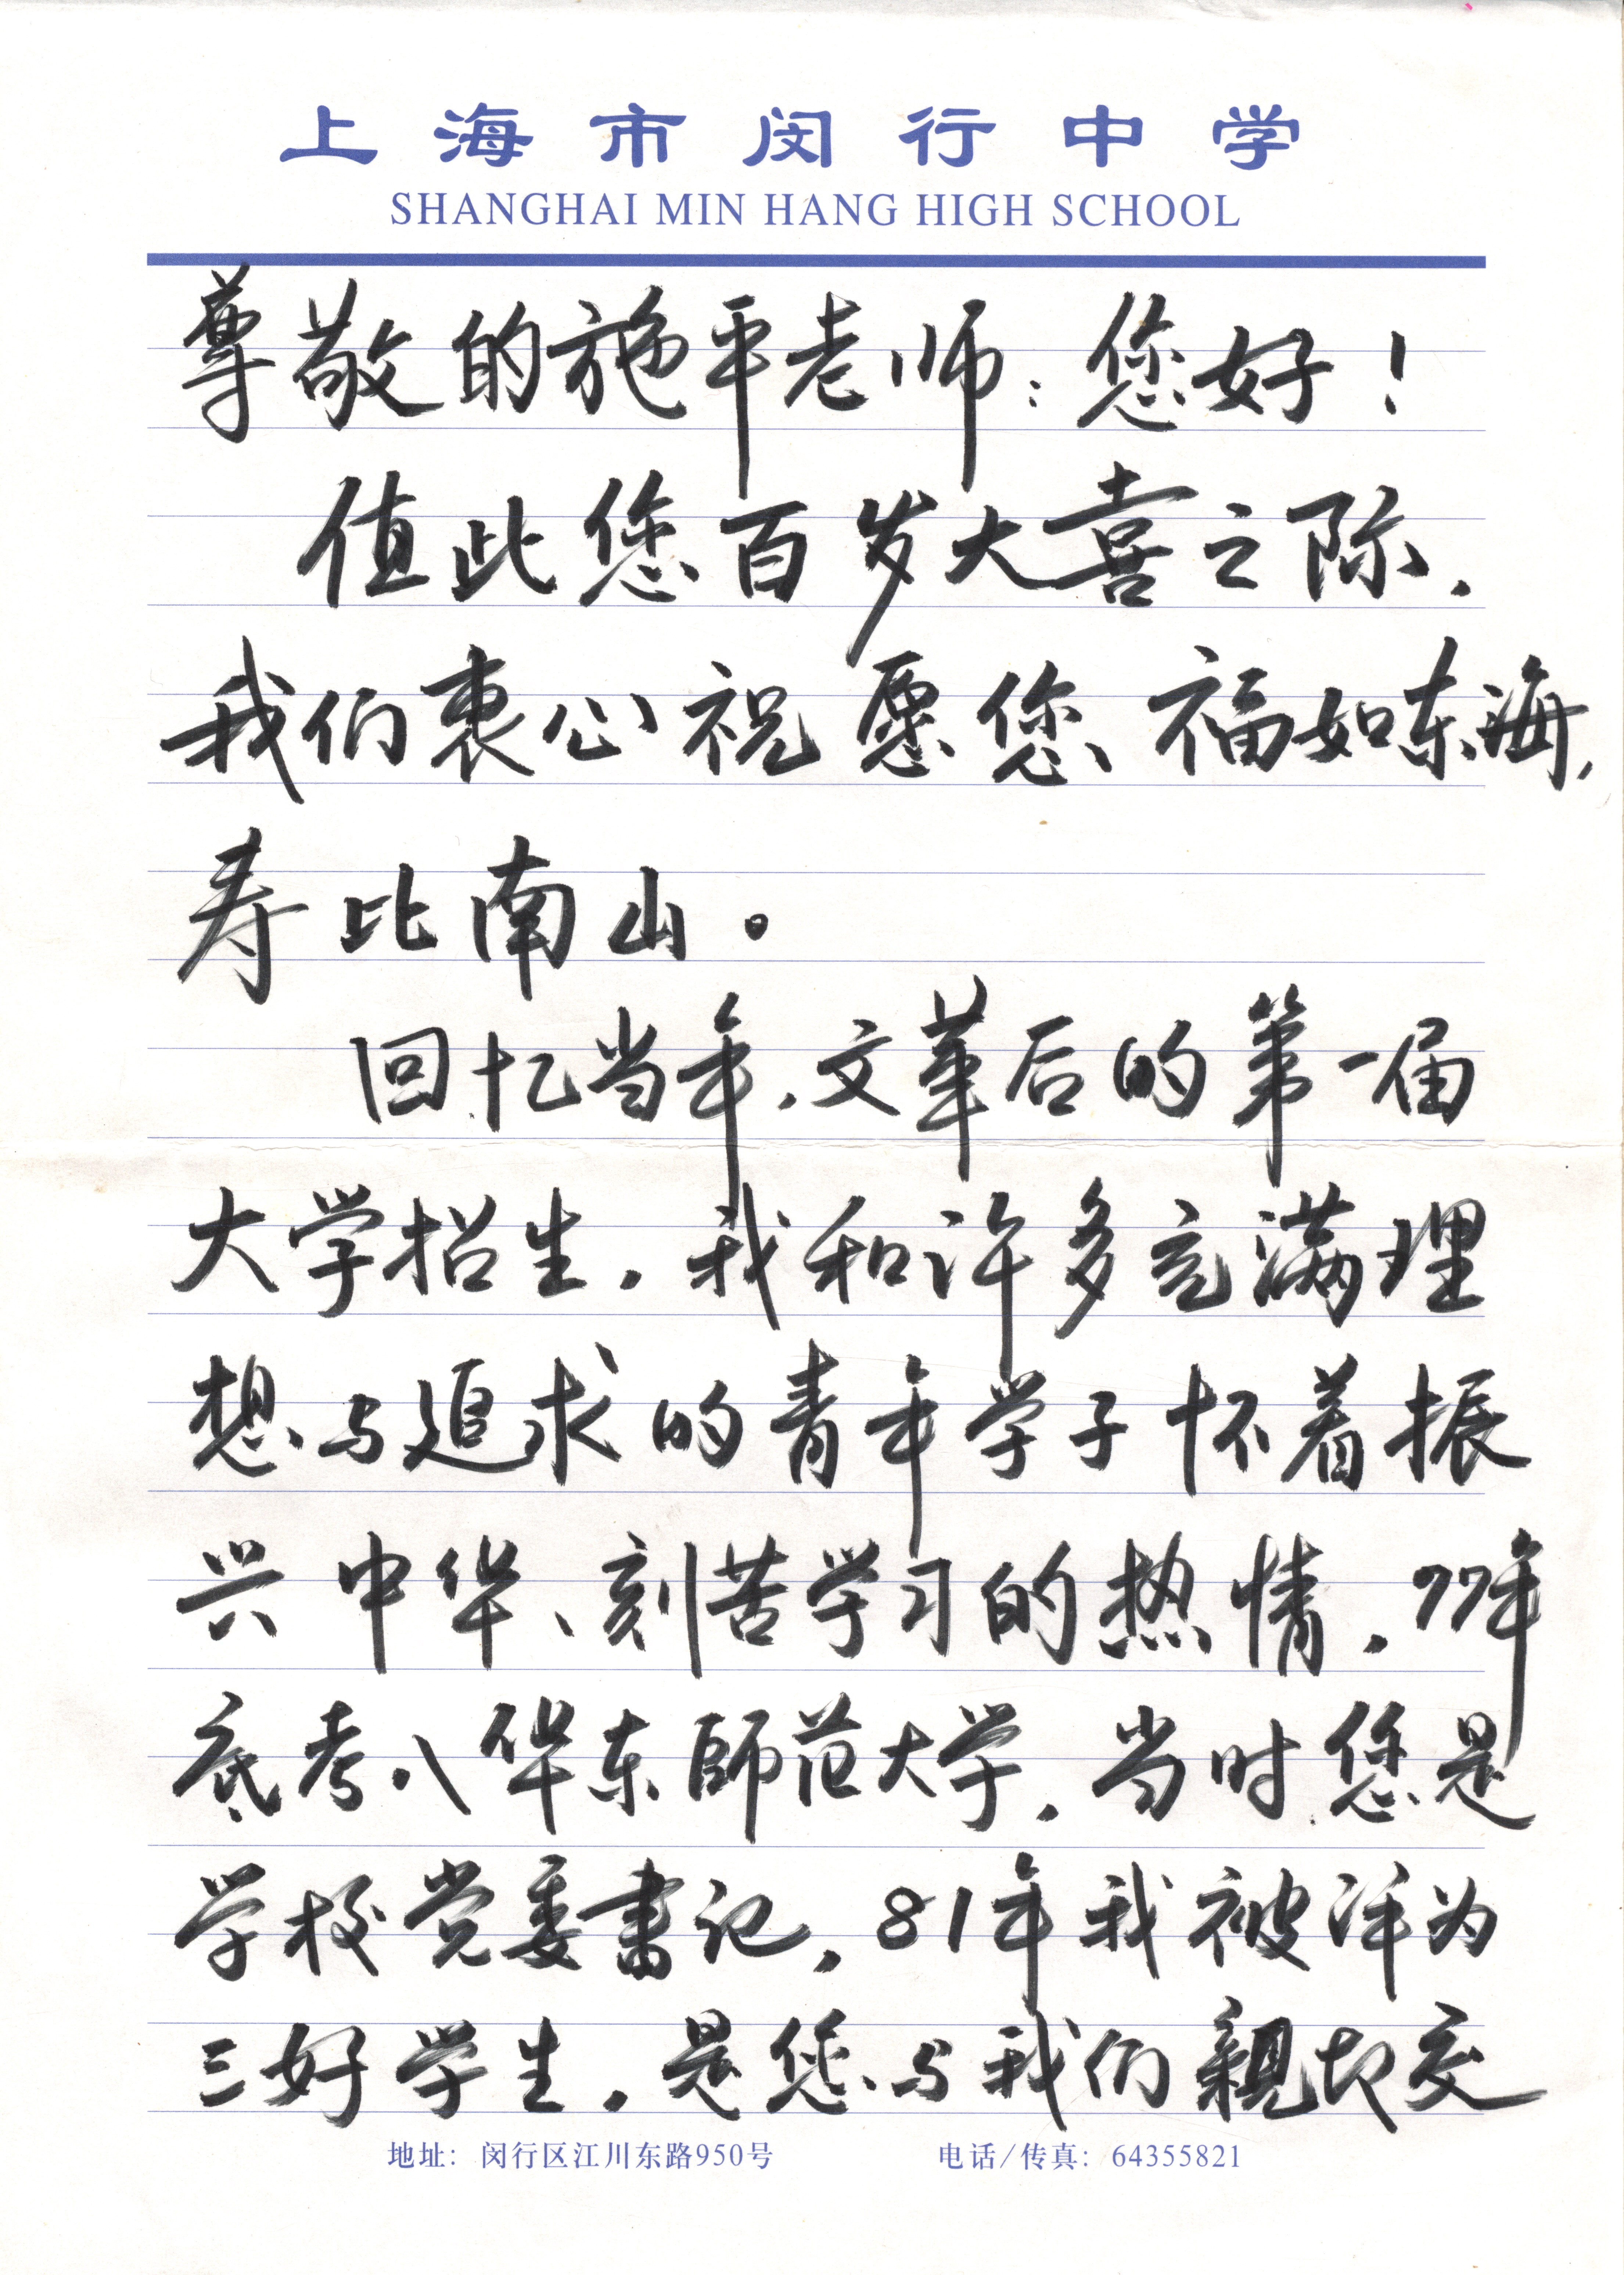 上海市闵行中学
SHANGHAI MIN HANG HIGH SCHOOL
尊敬的施平老师:您好!
值此您百岁大喜之际,
我们衷心祝愿您福如东海,
寿比南山。
回忆当年,文革后的第一届
大学招生,我和许多充满理
想与追求的青年学子怀着振
兴中华、刻苦学习的热情,77年
底考入华东師范大学,当时您是
学校党委書记,81年我被评为
三好学生,是您与我们親切交
地址:闵行区江川东路950号 电话/传真:64355821